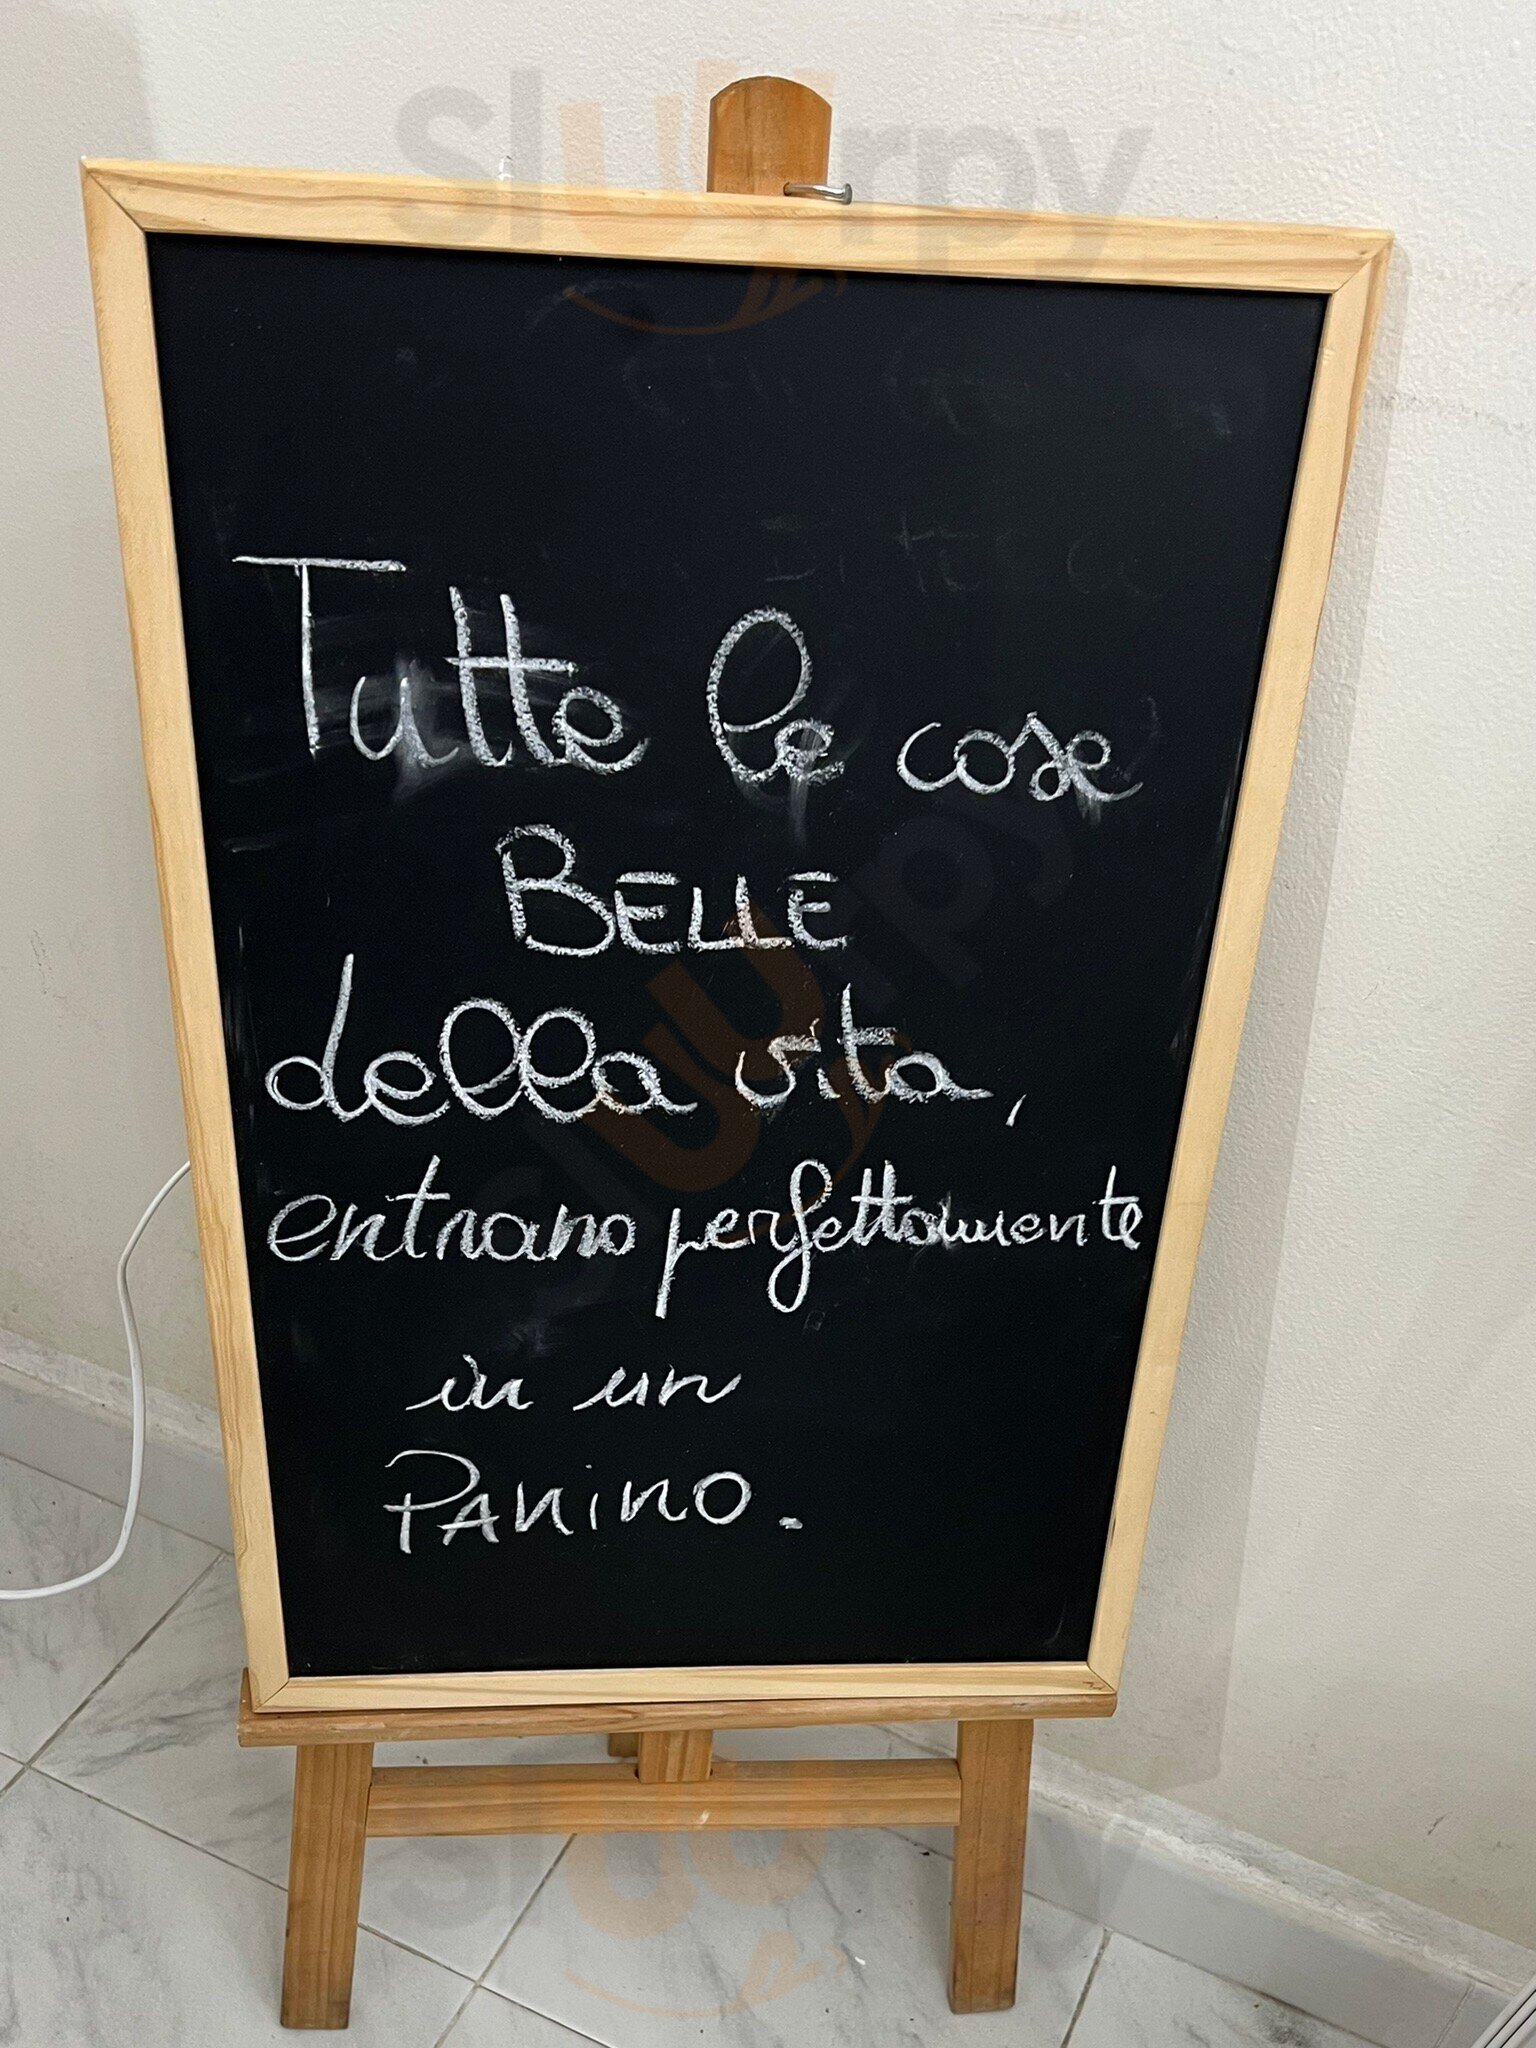 sluurpy
Tutte le cose
BELLE
della vita,
entrano perfettamente
in un
PANINO.
sluurpy
sluurpy